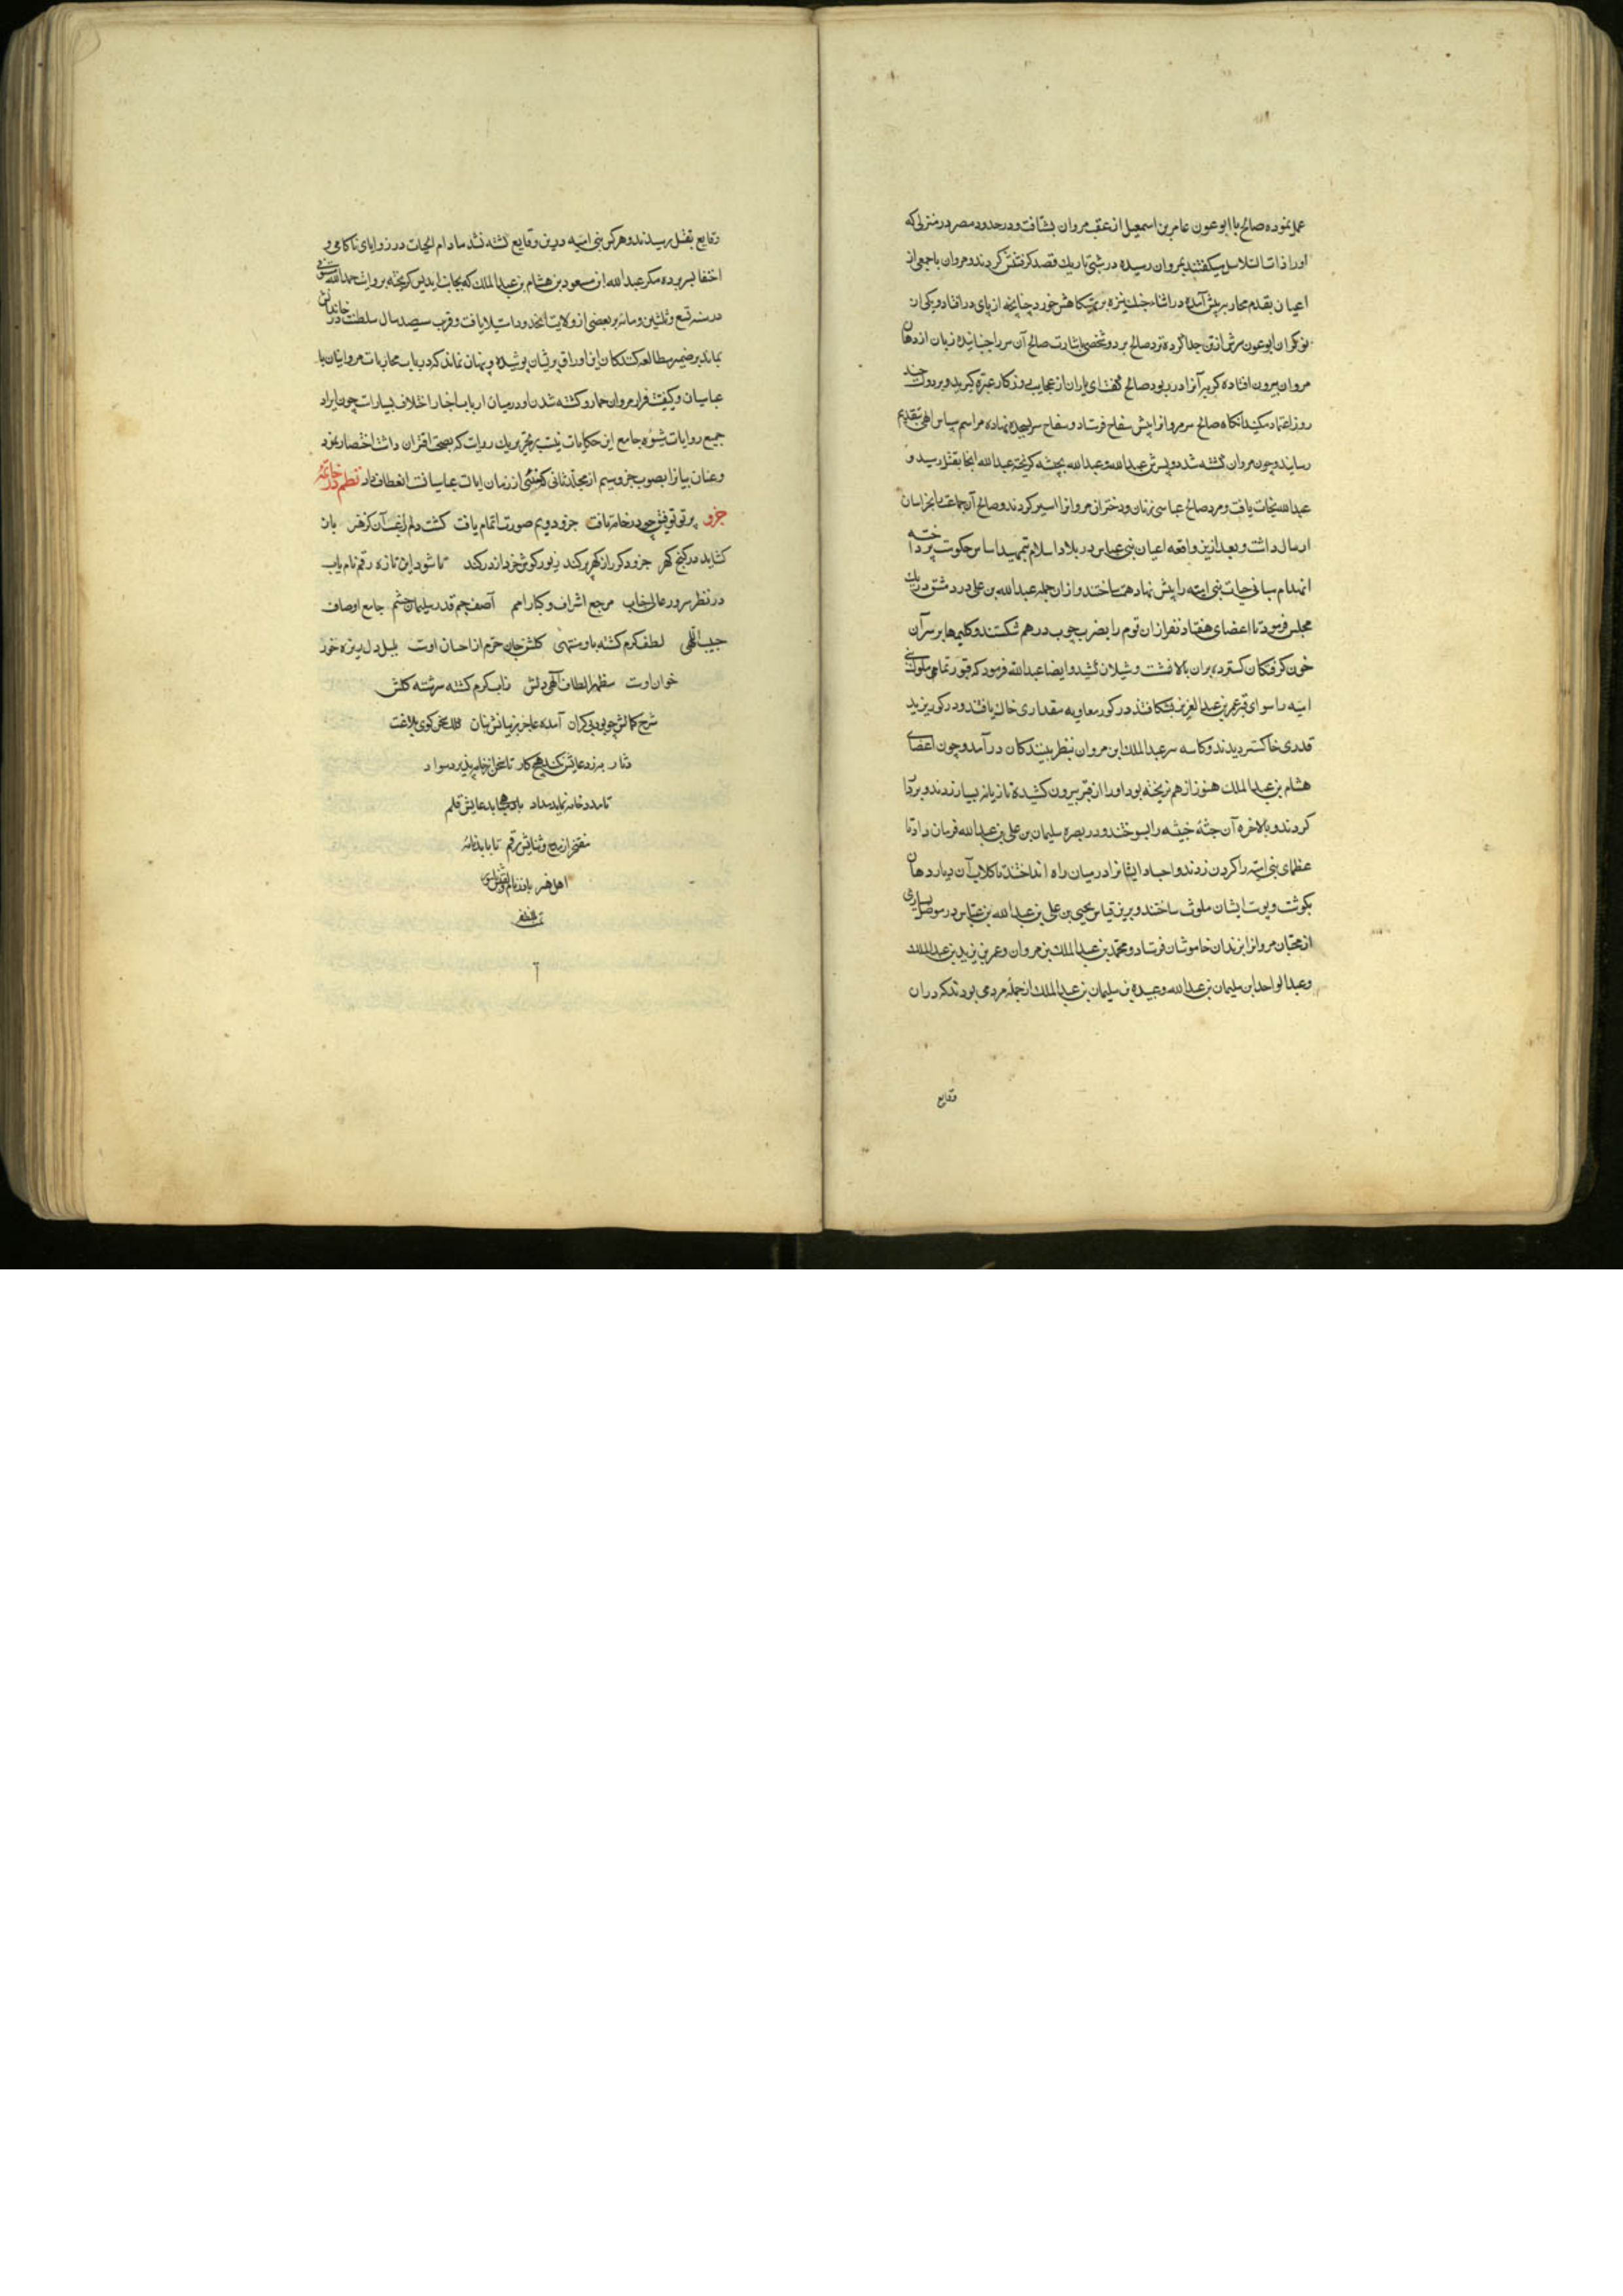 عمل نموده صالح با ابو عون عامر بن اسمعیل از عقب مروان بشتافت و در حدود مصر در منزلی که
او را ذات السلاسل میگفتند بمروان رسیده در شبی تاریک قصد گرفتنش کردند و مروان با جمعی از
اعیان بقدم محاربه پیش آمده در اثناء جنک نیزه بر تهیکاهش خورد چنانچه از پای در افتاد و یکی از
نوکران ابو عون سرش از تن جدا کرده نزد صالح برد و شخصی باشارت صالح آن سر را جنبانیده زبان از دهان
مروان بیرون افتاده کربه آنرا در ربود صالح گفت ای یاران از عجایب روزکار عبرة کیرید و بر دولت چند
روز اعتماد مکنید آنکاه صالح سر مروانرا پیش سفاح فرستاد و سفاح سر بسجده نهاده مراسم سپاس الهی بتقدیم
رسانید و چون مروان کشته شد دو پسرش عبدالله و عبیدالله بحبشه کریخته عبیدالله آنجا بقتل رسید و
عبدالله نجات یافت و مرد صالح عباسی زنان و دختران مروانرا اسیر کردند و صالح آن جماعت را بخراسان
ارسال داشت و بعد ازین واقعه اعیان بنی عباس در بلاد اسلام بتمهید اساس حکومت پرداخته
انهدام مبانی حیات بنی امیه را پیش نهاد همت ساختند و از ان جمله عبدالله بن علی در دمشق در یک
مجلس فرمود تا اعضای هفتاد نفر از ان قوم را بضرب چوب در هم شکستند و کلیمها بر سر آن
خون کرفتکان کسترده بران بالا نشست و شیلان کشید و ایضا عبدالله فرمود که قبور تمامی ملوک بنی
امیه را سوای قبر عمر بن عبدالعزیز بشکافتند در کور معاویه مقداری خاک یافتند و در کور یزید
قدری خاکستر دیدند و کاسه سر عبدالملک ابن مروان بنظر بینندکان در آمد و چون اعضای
هشام بن عبدالملک هنوز از هم نریخته بود او را از قبر بیرون کشیده تازیانه بسیار زدند و بردار
کردند و بالاخره آن جثهٔ خبیثه را بسوختند و در بصره سلیمان بن علی بن عبدالله فرمان داد تا
عظمای بنی امیه را کردن زدند و اجساد ایشانرا در میان راه انداختند تا کلاب آن دیار دهان
بکوشت و پوست ایشان ملوث ساختند و برین قیاس یحیی بن علی بن عبدالله بن عباس در موصل بسیاری
از محبان مروانرا بزندان خاموشان فرستاد و محمد بن عبدالملک بن مروان و عمر بن یزید بن عبدالملک
و عبدالواحد ابن سلیمان بن عبدالله و عبیده بن سلیمان بن عبدالملک از جمله مردمی بودند که در ان
وقایع
وقایع بقتل رسیدند و هر کس از بنی امیه درین وقایع کشته نشد مادام الحیات در زوایای ناکامی و
اختفا بسر برده مکر عبدالله ابن مسعود بن هشام بن عبدالملک که بجانب اندلس کریخته بروایت حمدالله مستوفی
در سنه تسع و ثلثین و مائه بر بعضی از ولایت آنحدود استیلا یافت و قرب سیصد سال سلطنت در خاندانش
بماند بر ضمیر مطالعه کنندکان این اوراق پریشان پوشیده و پنهان نماند که در باب محاربات مروانیان با
عباسیان و کیفیت فرار مروان حمار و کشته شدن او در میان ارباب اخبار اختلاف بسیارست چون ایراد
جمیع روایات شیوهٔ جامع این حکایات نیست بر تحریر یک روایت که بصحت اقتران داشت اختصار نمود
و عنان بیانرا بصوب جزو سیم از مجلد ثانی که مبنی از زمان ایالت عباسیانست انعطاف داد نظم در خاتمهٔ
جزو پرتو توفیق چو در خامه تافت جزو دویم صورت اتمام یافت کشت دلم راغب آن کز هنر باز
کشاید در کنج کهر جزو دکر را ز کهر پر کند زیور کوش خرد از در کند تا شود این تازه رقم نام یاب
در نظر سرور عالی جناب مرجع اشراف و کبار امم آصف جم قدر سلیمان حشم جامع اوصاف
حبیب اللهی لطف و کرم کشته باو منتهی کلشن جان خرم از احسان اوست بلبل دل ریزه خور
خوان اوست مظهر الطاف آلهی دلش ز آب کرم کشته سرشته کلش
شرح کمالش چو بود بی کران آمده عاجز ز بیانش زبان کوی بلاغت
دثار به ز دعایش نکند هیچ کار تا سخن از خامه پذیرد سواد
تا مدد خامه نماید مداد باد دعایش قلم
مفتخر از مدح و ثنایش رقم تا بابد نامهٔ
اهل هنر باد بنام